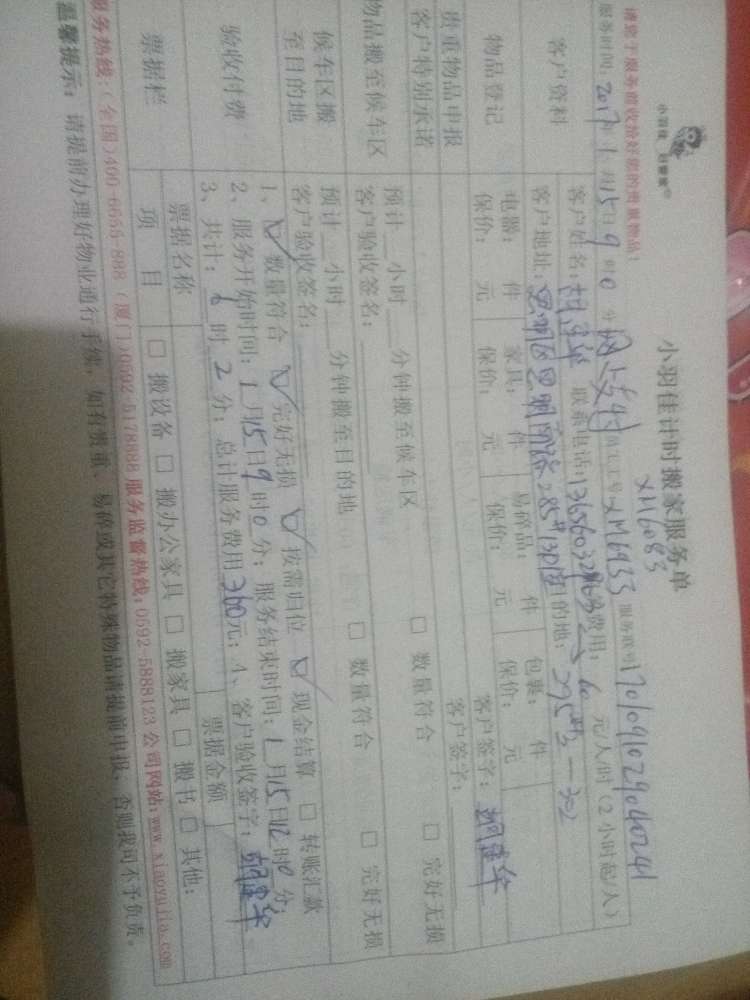 小羽佳 好管家
小羽佳计时搬家服务单
XM6083
请您于服务前收拾好您的贵重物品！
服务时间：2017年1月15日9时0分 员工工号：XM6955 服务账号：170109102904024
客户资料
客户姓名： 联系电话： 费用：60元/人/时（2小时起/人）
客户地址：思明区思明南路285# 目的地：
物品登记
电器： 件 家具： 件 易碎品： 件 包裹： 件
保价： 元 保价： 元 保价： 元 保价： 元
客户签字：
贵重物品申报
客户特别承诺
客户签字：
物品搬至候车区
预计__小时__分钟搬至候车区 □ 数量符合 □ 完好无损
客户验收签名：
候车区搬至目的地
预计__小时__分钟搬至目的地 □ 数量符合 □ 完好无损
客户验收签名：
验收付费
1、☑ 数量符合 ☑ 完好无损 ☑ 按需归位 ☑ 现金结算 □ 转账汇款
2、服务开始时间：1月15日9时0分；服务结束时间：1月15日12时0分；
3、共计：6时2分；总计服务费用360元；4、客户验收签字：
票据栏
票据名称 票据金额
项目 □ 搬设备 □ 搬办公家具 □ 搬家具 □ 搬书 □ 其他：
服务热线：（全国）400-6655-888 （厦门）0592-5178888 服务监督热线：0592-5888123 公司网站：www.xiaoyujia.com
温馨提示：请提前办理好物业通行手续，如有贵重、易碎或其它特殊物品请提前申报，否则我司不予负责。